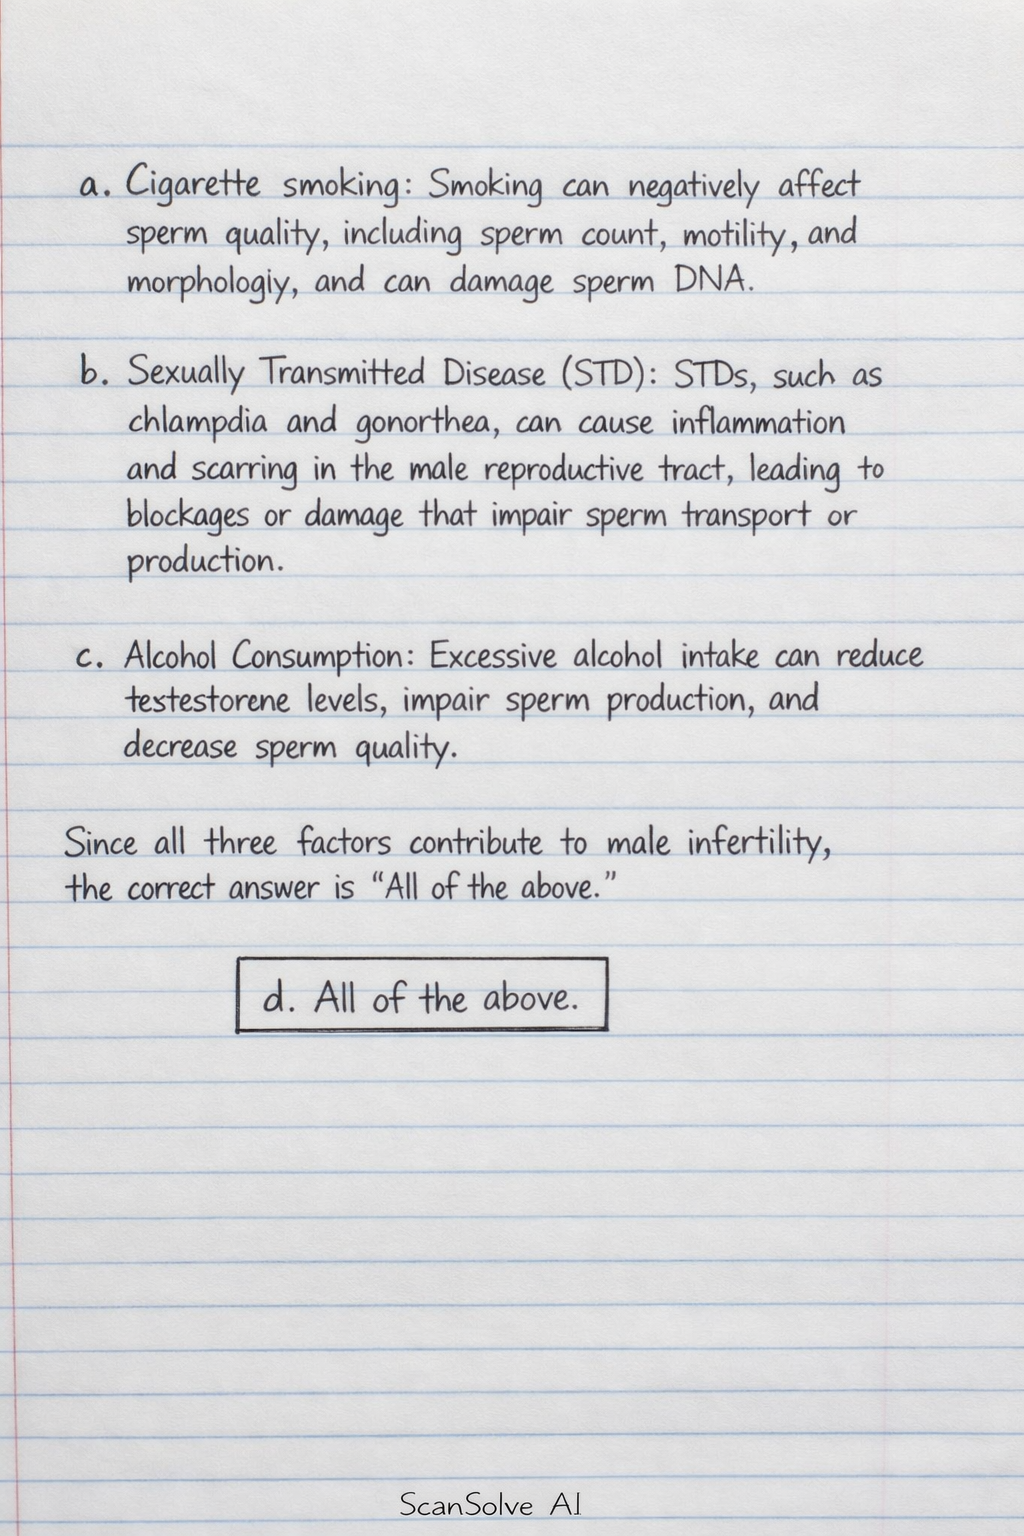 a. Cigarette smoking: Smoking can negatively affect
sperm quality, including sperm count, motility, and
morphologiy, and can damage sperm DNA.
b. Sexually Transmitted Disease (STD): STDs, such as
chlampdia and gonorthea, can cause inflammation
and scarring in the male reproductive tract, leading to
blockages or damage that impair sperm transport or
production.
c. Alcohol Consumption: Excessive alcohol intake can reduce
testestorene levels, impair sperm production, and
decrease sperm quality.
Since all three factors contribute to male infertility,
the correct answer is “All of the above.”
d. All of the above.
ScanSolve AI